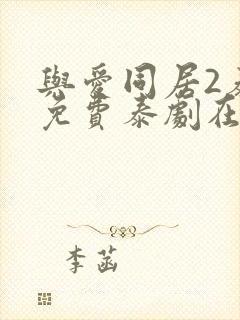 與愛同居2
免費泰劇在
李菡